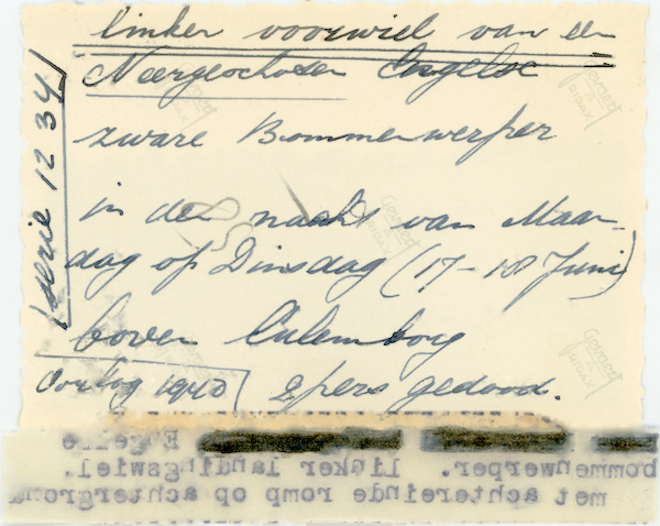 linker voorwiel van een
Neergeschoten Engelse
zware Bommenwerper
in de nacht van Maan-
dag op Dinsdag (17-18 Juni)
boven Culemborg
Oorlog 1940 2 pers gedood.
serie 12 34
Gevaert
RIDAX
Gevaert
RIDAX
Gevaert
RIDAX
Engelse
bommenwerper. linker landingswiel.
met achtereinde romp op achtergrond